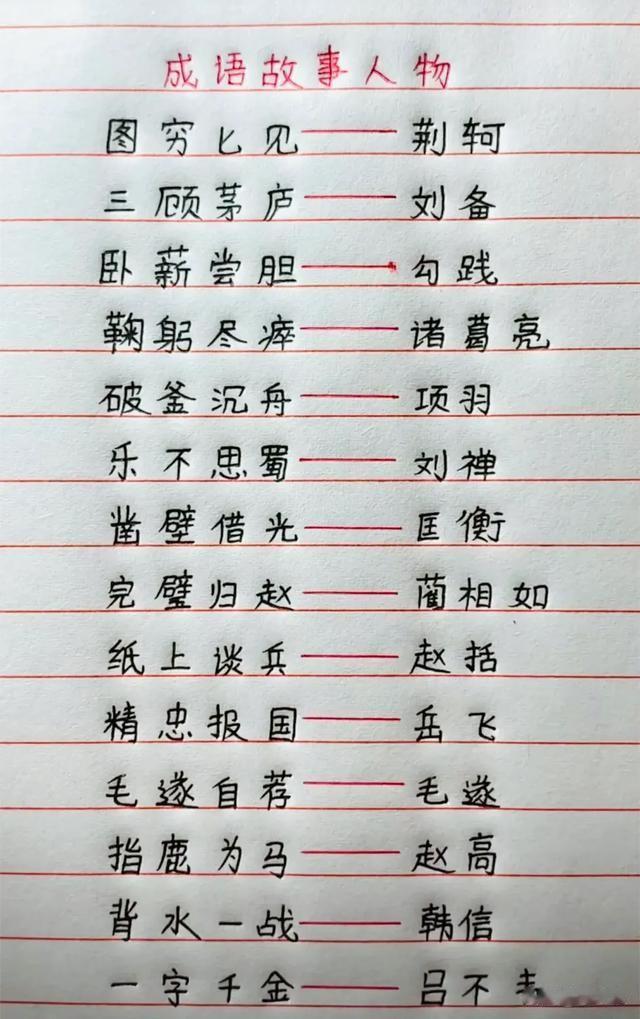 成语故事人物
图穷匕见——荆轲
三顾茅庐——刘备
卧薪尝胆——勾践
鞠躬尽瘁——诸葛亮
破釜沉舟——项羽
乐不思蜀——刘禅
凿壁借光——匡衡
完璧归赵——蔺相如
纸上谈兵——赵括
精忠报国——岳飞
毛遂自荐——毛遂
指鹿为马——赵高
背水一战——韩信
一字千金——吕不